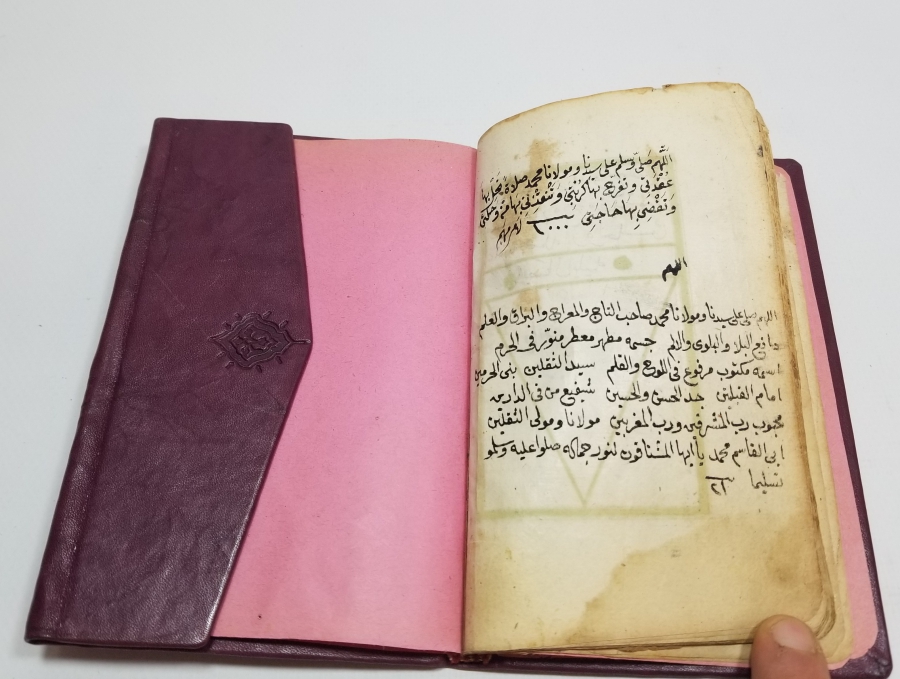 اللهم صلى وسلم على سيدنا ومولانا محمد صلاة تحل بها
عقدتى وتفرج بها كربتى وتنقذنى بها من وحلتى
وتقضى بها حاجتى
اللهم
اللهم صلى على سيدنا ومولانا محمد صاحب التاج والمعراج والبراق والعلم
دافع البلا والبلوى والالم جسمه مطهر معطر منور فى الحرم
اسمه مكتوب مرفوع فى اللوح والقلم سيد الثقلين نبى الحرمين
امام القبلتين جد الحسن والحسين شفيع من فى الدارين
محبوب رب المشرقين ورب المغربين مولانا ومولى الثقلين
ابى القاسم محمد يا ايها المشتاقون لنور جماله صلوا عليه وسلمو
تسليما